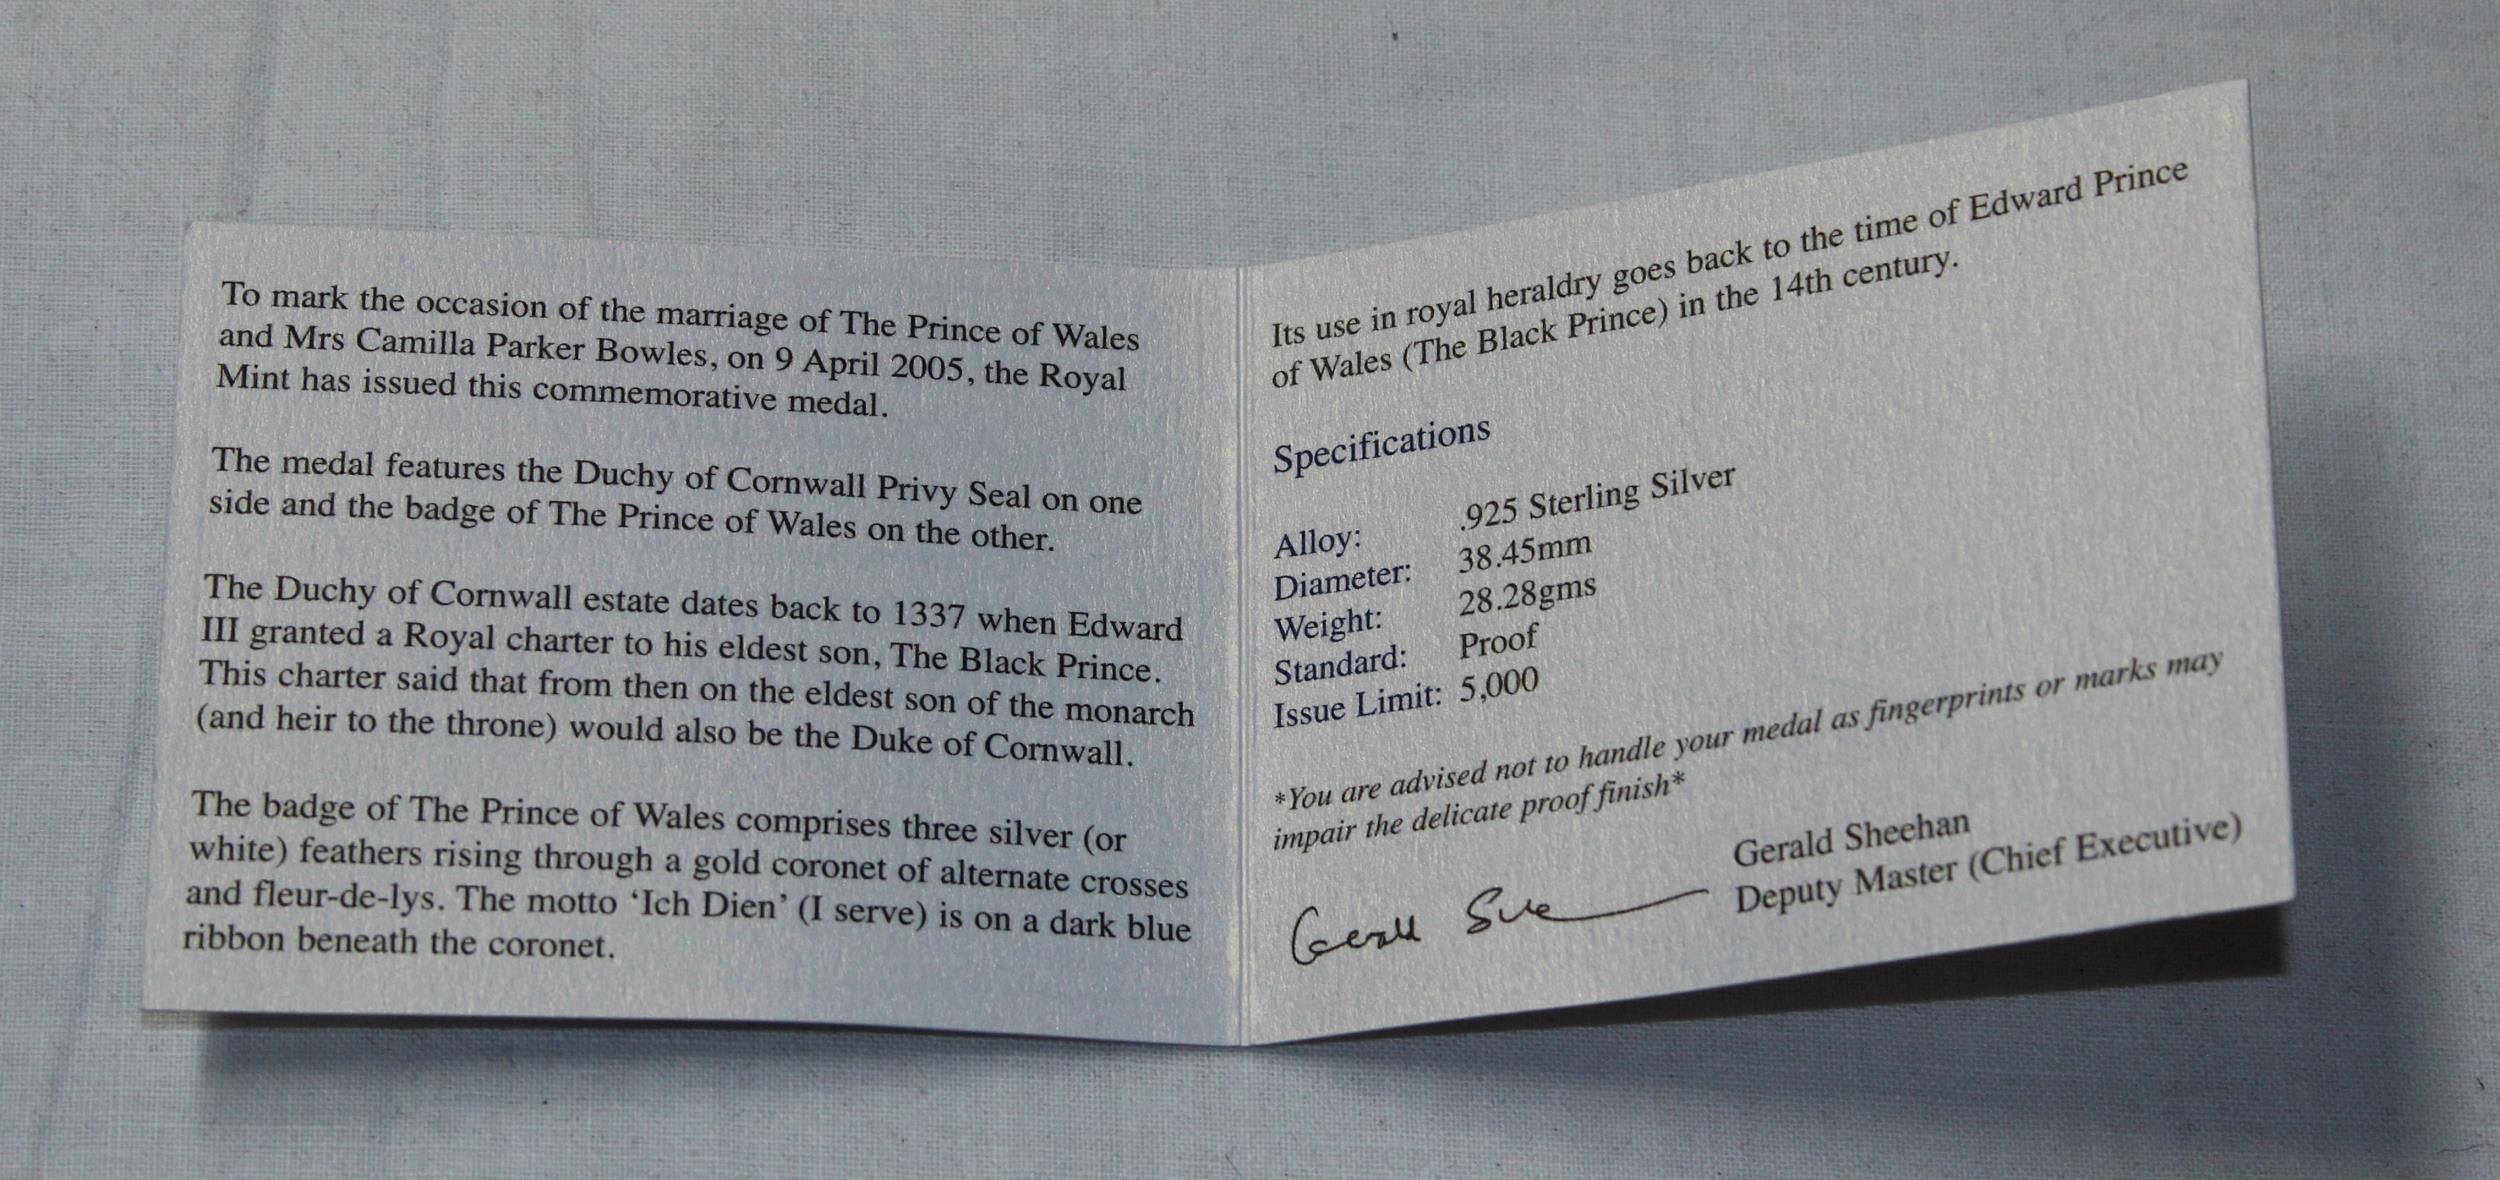 To mark the occasion of the marriage of The Prince of Wales
and Mrs Camilla Parker Bowles, on 9 April 2005, the Royal
Mint has issued this commemorative medal.
The medal features the Duchy of Cornwall Privy Seal on one
side and the badge of The Prince of Wales on the other.
The Duchy of Cornwall estate dates back to 1337 when Edward
III granted a Royal charter to his eldest son, The Black Prince.
This charter said that from then on the eldest son of the monarch
(and heir to the throne) would also be the Duke of Cornwall.
The badge of The Prince of Wales comprises three silver (or
white) feathers rising through a gold coronet of alternate crosses
and fleur-de-lys. The motto ‘Ich Dien’ (I serve) is on a dark blue
ribbon beneath the coronet.
Its use in royal heraldry goes back to the time of Edward Prince
of Wales (The Black Prince) in the 14th century.
Specifications
Alloy: .925 Sterling Silver
Diameter: 38.45mm
Weight: 28.28gms
Standard: Proof
Issue Limit: 5,000
*You are advised not to handle your medal as fingerprints or marks may
impair the delicate proof finish*
Gerald Sheehan
Deputy Master (Chief Executive)